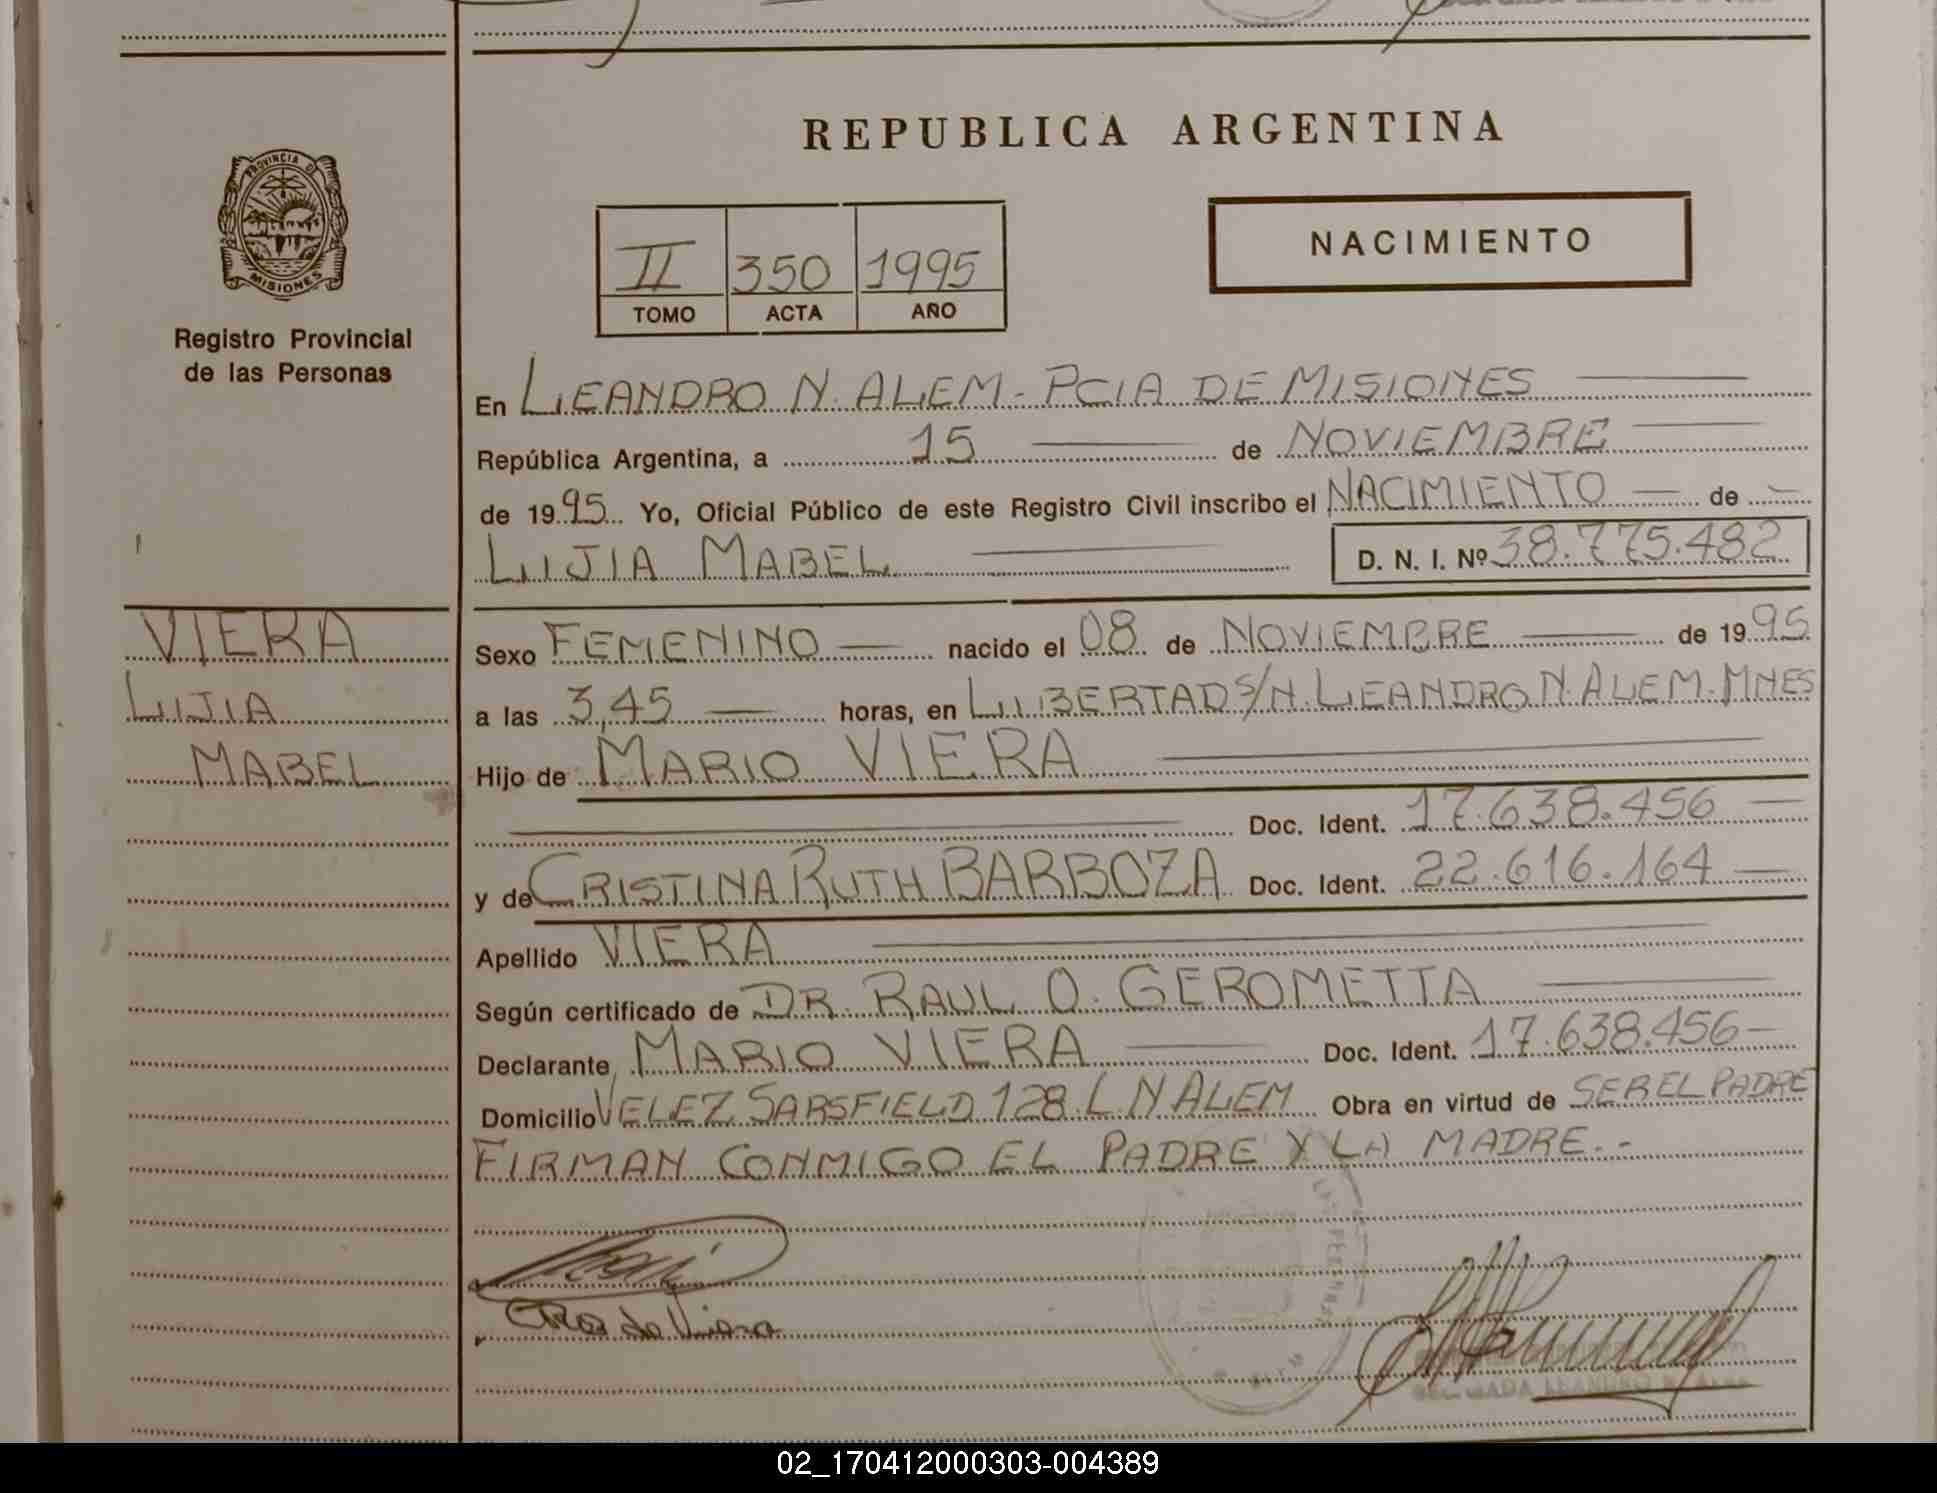 REPUBLICA ARGENTINA
PROVINCIA D
MISIONES
Registro Provincial
de las Personas
II 350 1995
TOMO ACTA AÑO
NACIMIENTO
En LEANDRO N. ALEM - PCIA DE MISIONES
República Argentina, a 15 de NOVIEMBRE
de 1995 Yo, Oficial Público de este Registro Civil inscribo el NACIMIENTO de
LIJIA MABEL D. N. I. Nº 38.775.482
VIERA
LIJIA
MABEL
Sexo FEMENINO nacido el 08 de NOVIEMBRE de 1995
a las 3,45 horas, en LIBERTAD S/N. LEANDRO N. ALEM. MNES
Hijo de MARIO VIERA
Doc. Ident. 17.638.456
y de CRISTINA RUTH BARBOZA Doc. Ident. 22.616.164
Apellido VIERA
Según certificado de DR. RAUL O. GEROMETTA
Declarante MARIO VIERA Doc. Ident. 17.638.456
Domicilio VELEZ SARSFIELD 128. L N ALEM Obra en virtud de SER EL PADRE
FIRMAN CONMIGO EL PADRE Y LA MADRE.-
de Viera
02_170412000303-004389